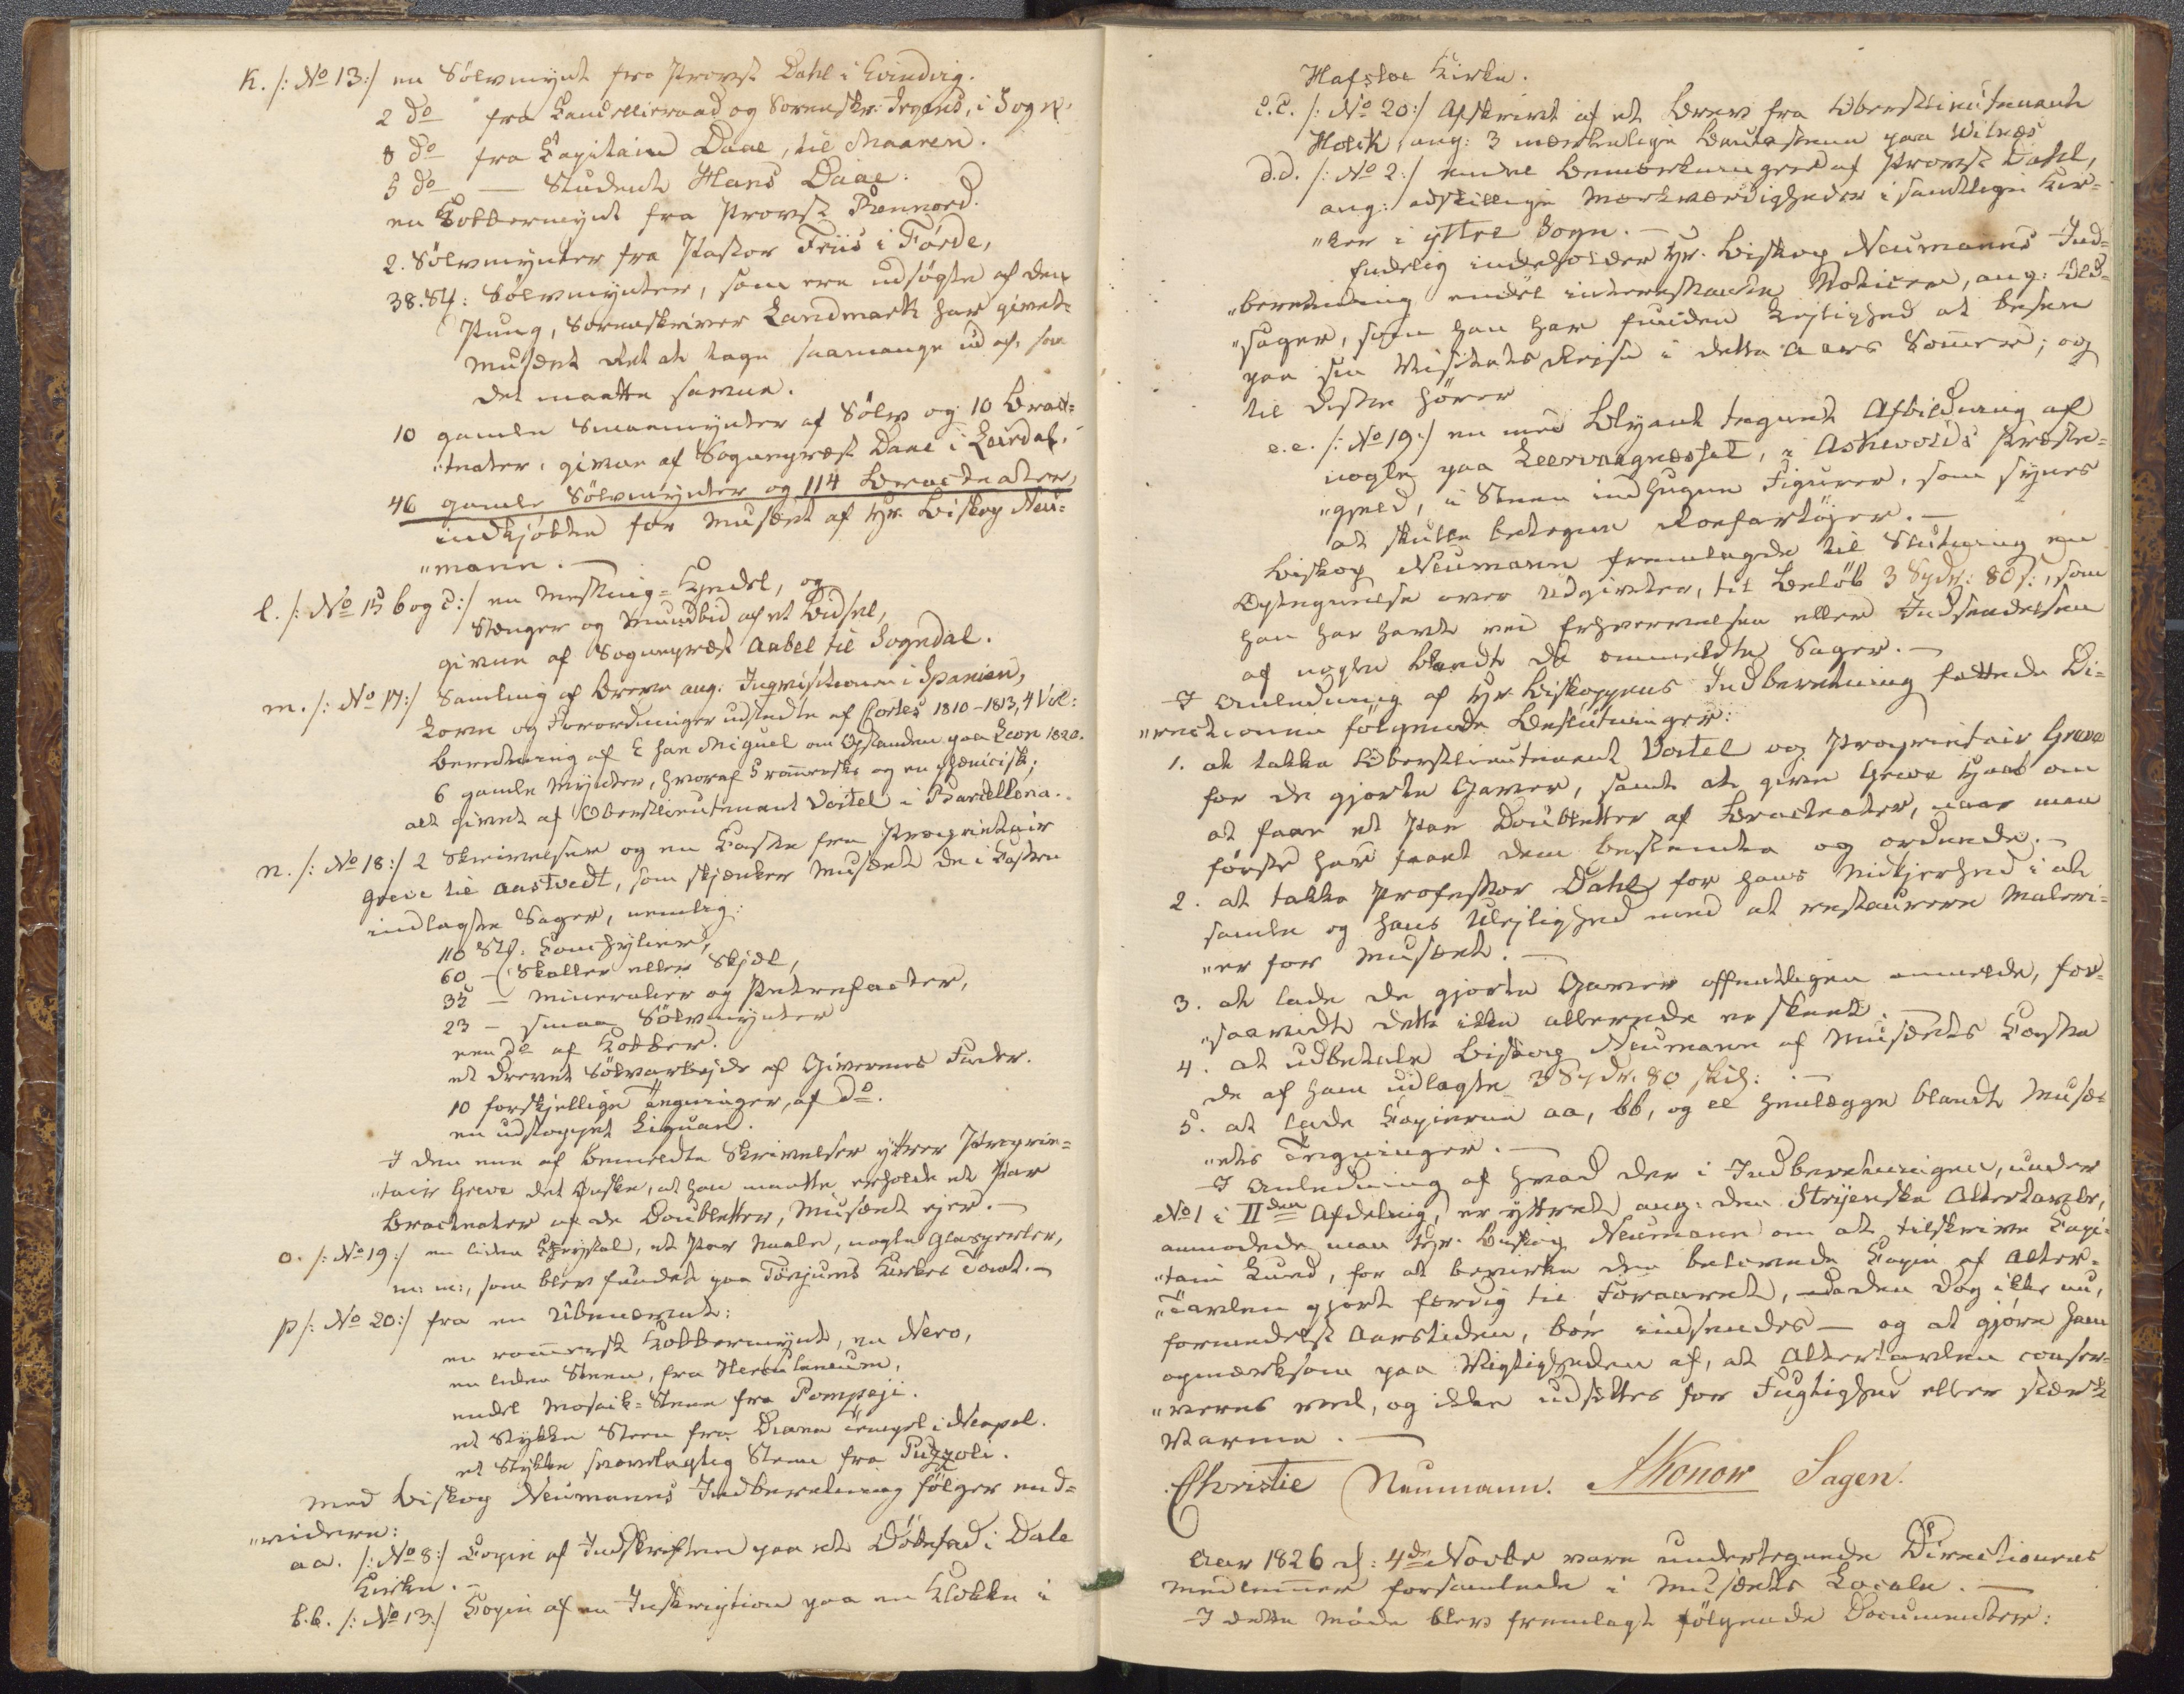 K. /: No 13:/ en Sölvmynt fra Provst Dahl i Evindvig.
2 do fra Cancellieraad og Sorenskr: Irgens, i Sogn.
8 do fra Capitain Daae, til Maaren.
5 do — Student Hans Daae.
en Kobbermynt fra Provst Rennord.
2. Sölvmynter fra Pastor Friis i Förde,
38. St: Sölvmynter, som ere udsögte af den
Pung, Sorenskriver Landmark har givet
Musæet Ret at tage saamange ud af, som
det maatte savne.
10 gamle Smaamynter af Sölv og 10 Brac=
"teater, givne af Sognepræst Daae i Leirdal.
46 gamle Sölvmynter og 114 Bracteater,
indkjöbte for Musæet af Hr. Biskop Neu=
"mann. —
l. /: No 15 b og c:/ en Messing=Kjedel, og
Stænger og Mundbid af et Bidsel,
givne af Sognepræst Aabel til Sogndal.
m. /: No 17:/ Samling af Breve ang. Inqvisitionen i Spanien,
Love og Forordninger udstedte af Cortes 1810-1813, 4 Vol:
Beretning af E San Miguel om Opstanden paa Leon 1820.
6 gamle Mynter, hvoraf 5 romerske og en phönicisk;
alt givet af Oberstlieutenant Vostel i Barcellona.
n. /: No 18:/ 2 Skrivelser og en Casse fra Proprietair
Greve til Aastvedt, som skjænker Musæet de i Cassen
indlagte Sager, nemlig:
110 St: Conchylier,
60 — Skaller eller Skjæl,
35 — Mineralier og Petrefacter,
23 — smaa Sölvmynter
een do af Kobber.
et drevet Sölvarbejde af Giverens Fader.
10 forskjellige Tegninger, af do.
en udstoppet Liguan.
I den ene af bemeldte Skrivelser yttrer Proprie=
"tair Greve det Önske, at han maatte erholde et Par
Bracteater af de Doubletter, Musæet ejer. —
o. /: No 19:/ en liden Chrystal, et Par Naale, nogle Glasperler,
m: m:, som blev fundet paa Tönjums Kirkes Tomt. —
p /: No 20:/ fra en Ubenævnt:
en romersk Kobbermynt, en Nero,
en liden Steen, fra Herculaneum,
endel Mosaik=Stene fra Pompeji.
et Stykke Steen fra Diana Tempel i Neapel.
et Stykke svovelagtig Steen fra Puzzoli.
Med Biskop Neumanns Indberetning fölger end=
"videre:
aa. /: No 8:/ Copie af Indskriften paa et Döbefad i Dale
Kirke. —
b.b. /: No 13:/ Copie af en Inskription paa en Klokke i
Hafsloe Kirke.
c.c. /: No 20:/ Afskrivt af et Brev fra Oberstlieutenant
Holck, ang: 3 mærkelige Bautastene paa Wilnæs
d.d. /: No 2:/ endel Bemærkninger af Provst Dahl,
ang: adskillige Mærkværdigheder i samtlige Kir=
"ker i yttre Sogn. —
Endelig indeholder Hr. Biskop Neumanns Ind=
"beretning endel interessante Noticer, ang: Old=
"sager, som han har funden Lejlighed at besee
paa sin Visitats Rejse i dette Aars Sommer; og
til disse hörer
e.e. /: No 19:/ en med Blyant tegnet Afbildning af
nogle paa Leervaagnæsset, i Askevolds Præste=
"gjeld, i Steen indhugne Figurer, som synes
at skulle betegne Roefartöjer. —
Biskop Neumann fremlagde til Slutning en
Optegnelse over Udgivter, til Belöb 3 Spdr: 80 s:, som
han har havt ved Erhvervelsen eller Indsendelsen
af nogle blandt de anmeldte Sager. —
I Anledning af Hr. Biskoppens Indberetning fattede Di=
"rectionen fölgende Beslutninger:
1. at takke Oberstlieutenant Vostel og Proprietair Greve
for de gjorte Gaver, samt at give Greve Haab om
at faae et Par Doubletter af Bracteater, naar man
först har faaet dem bestemte og ordnede. —
2. at takke Professor Dahl for hans Nidkjerhed i at
samle og hans Ulejlighed med at restaurere Maleri=
"er for Musæet. —
3. at lade de gjorte Gaver offentligen anmelde, for=
"saavidt dette ikke allerede er skeet. —
4. at udbetale Biskop Neumann af Musæets Casse
de af ham udlagte 3 Spdr. 80 skil: —
5. at lade Copierne aa, bb, og ee henlægge blandt Musæ=
"ets Tegninger. —
I Anledning af hvad der i Indberetningen, under
No 1 i IIden Afdeling, er yttret ang: den Stryenske Altertavle,
anmodede man Hr. Biskop Neumann om at tilskrive Capi=
"tain Lund, for at bevirke den belovede Copie af Alter=
"tavlen gjort færdig til Foraaret, da den dog ikke nu,
formedelst Aarstiden, bör indsendes — og at gjöre ham
opmærksom paa Vigtigheden af, at Altertavlen conser=
"veres vel, og ikke udsættes for Fugtighed eller stærk
Varme. —
Christie Neumann. AKonow Sagen.
Aar 1826 d: 4de Novbr vare undertegnede Directionens
Medlemmer forsamlede i Musæets Locale. —
I dette Möde blev fremlagt fölgende Documenter: